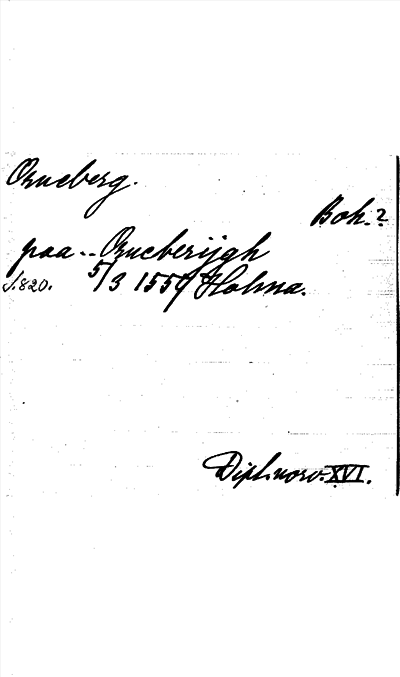 Orneberg.
Boh.?
paa -- Orneberijgh
s. 820. 5/3 1559 Holma.
Dipl. norv. XVI.